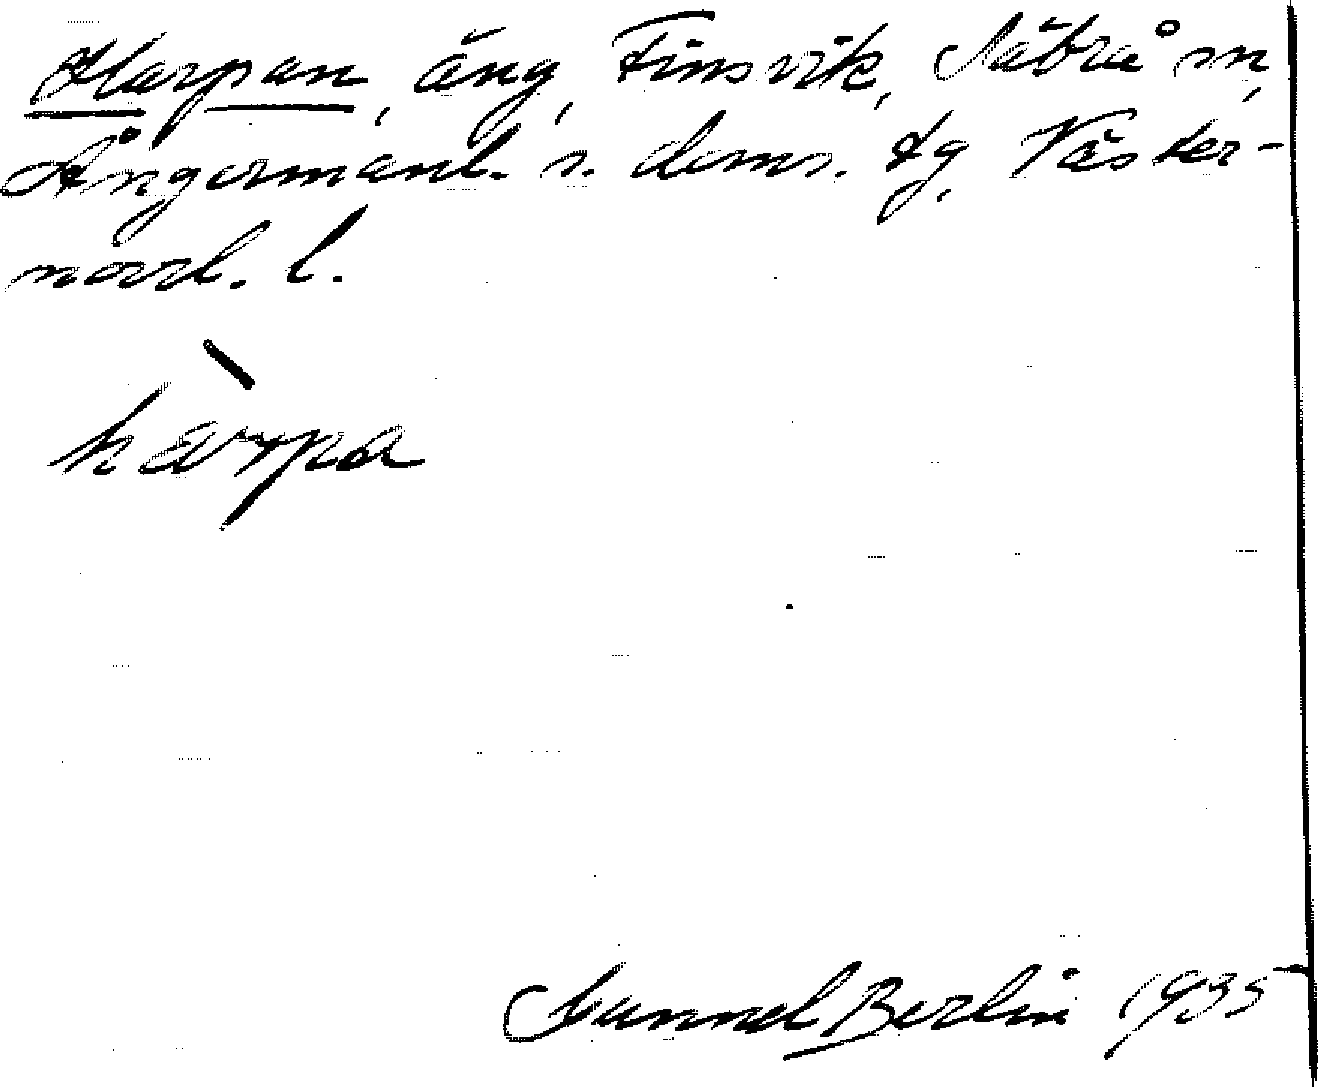 Harpan, äng, Finsvik, Säbrå sn,
Ångermanl. s. doms. tg. Väster-
norrl. l.
hàrpa
Gunnel Berlin 1935